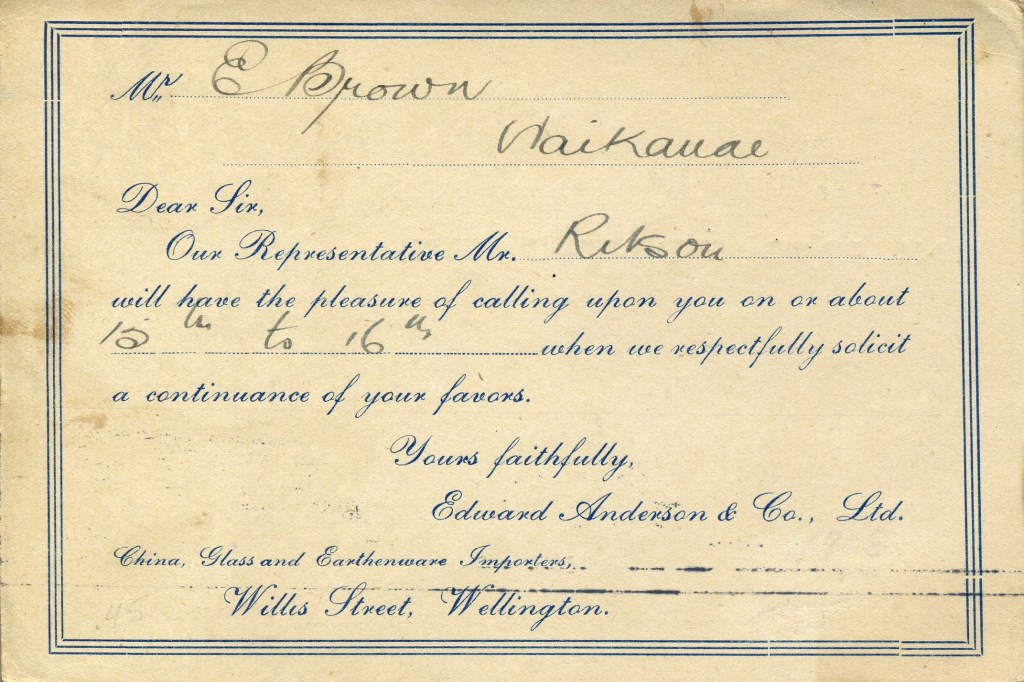 Mr. E Brown
Waikanae
Dear Sir,
Our Representative Mr. Rekson
will have the pleasure of calling upon you on or about
15th to 16th when we respectfully solicit
a continuance of your favors.
Yours faithfully,
Edward Anderson & Co., Ltd.
China, Glass and Earthenware Importers,
Willis Street, Wellington.
.45